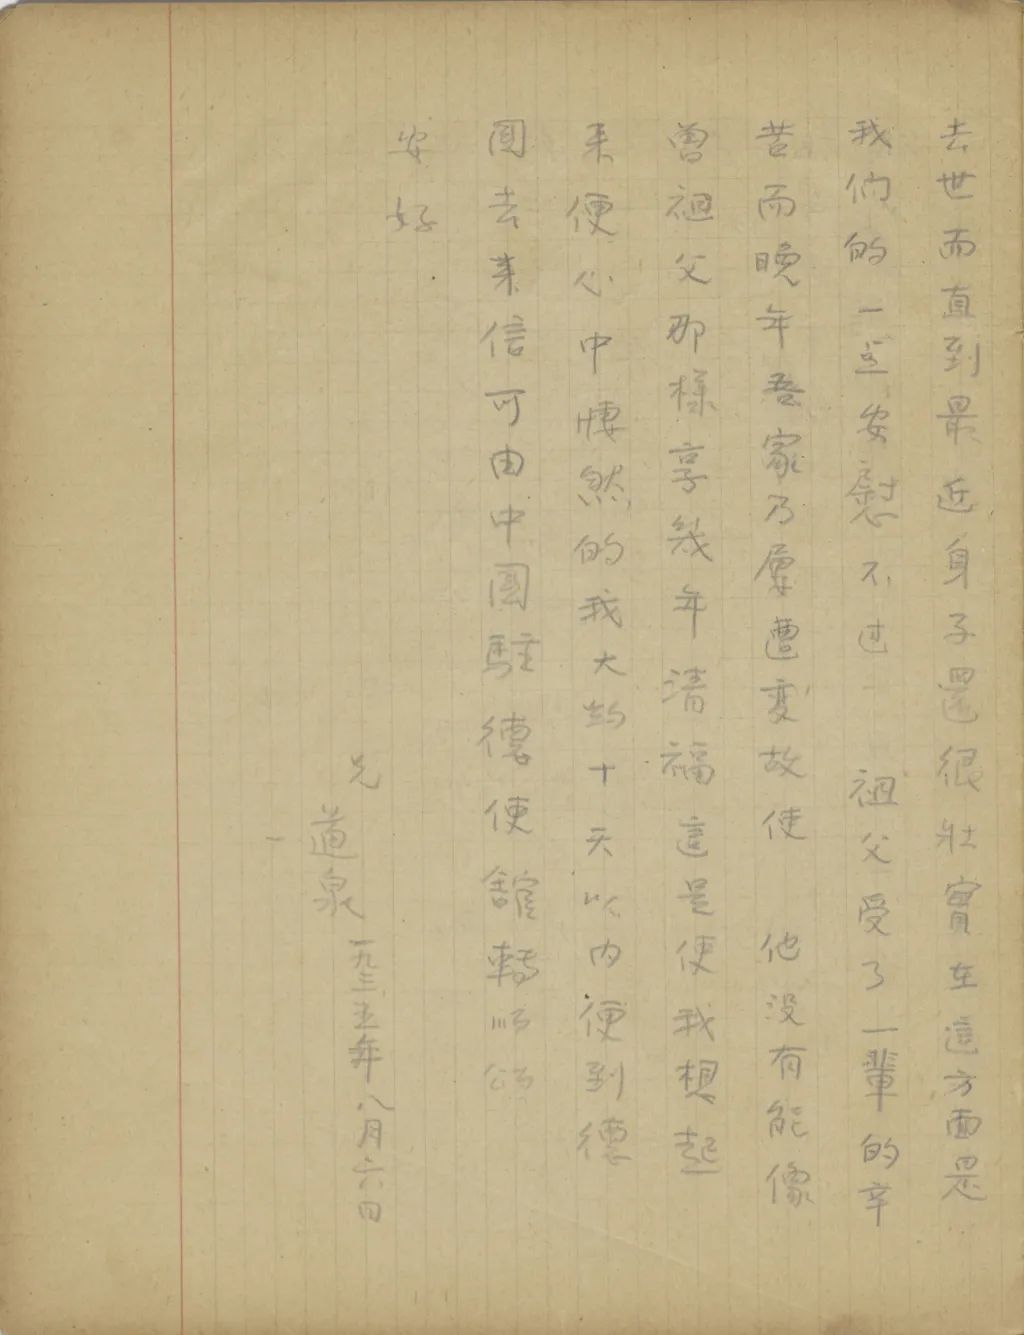 去世而直到最近身子還很壯實在這方面是
我们的一点安慰不过 祖父受了一輩的辛
苦而晚年吾家乃屢遭变故使 他没有能像
曾祖父那樣享幾年清福這是使我想起
来便心中悽然的我大約十天以内便到德
國去来信可由中國駐德使館轉此頌
安好
兄
道泉
一九三五年八月六日